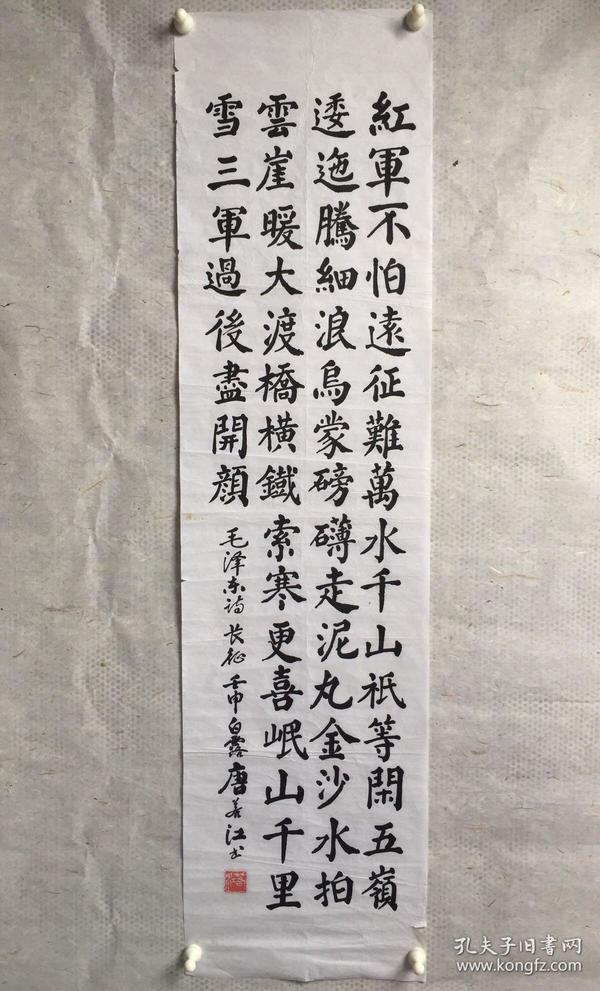 紅軍不怕遠征難萬水千山祇等閑五嶺
逶迤騰細浪烏蒙磅礴走泥丸金沙水拍
雲崖暖大渡橋橫鐵索寒更喜岷山千里
雪三軍過後盡開顔
毛泽东诗长征壬申白露唐善江书
孔夫子旧书网
www.kongfz.com